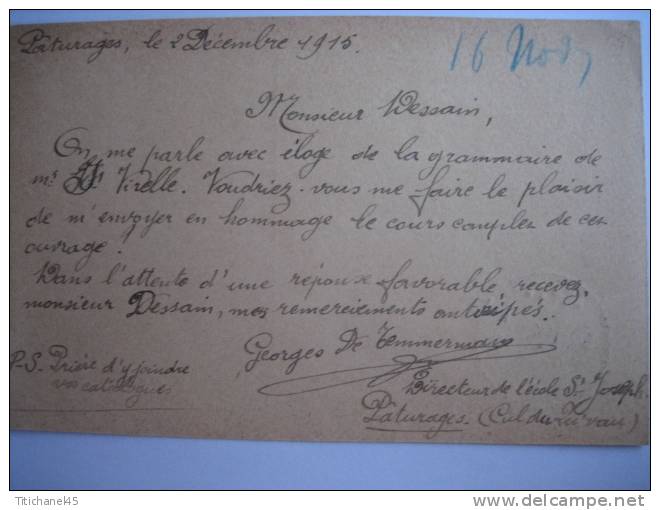 Pâturages, le 2 Décembre 1915.
16
Monsieur Dessain,
On me parle avec éloge de la grammaire de
Mr Virelle. Voudriez-vous me faire le plaisir
de m'envoyer en hommage le cours complet de cet
ouvrage!
Dans l'attente d'une réponse favorable recevez,
monsieur Dessain, mes remerciements anticipés.
Georges De Temmerman
P-S. Prière d'y joindre
vos catalogues
Directeur de l'école St Joseph
Pâturages. (Cul du
Titichane45
delcampe.net